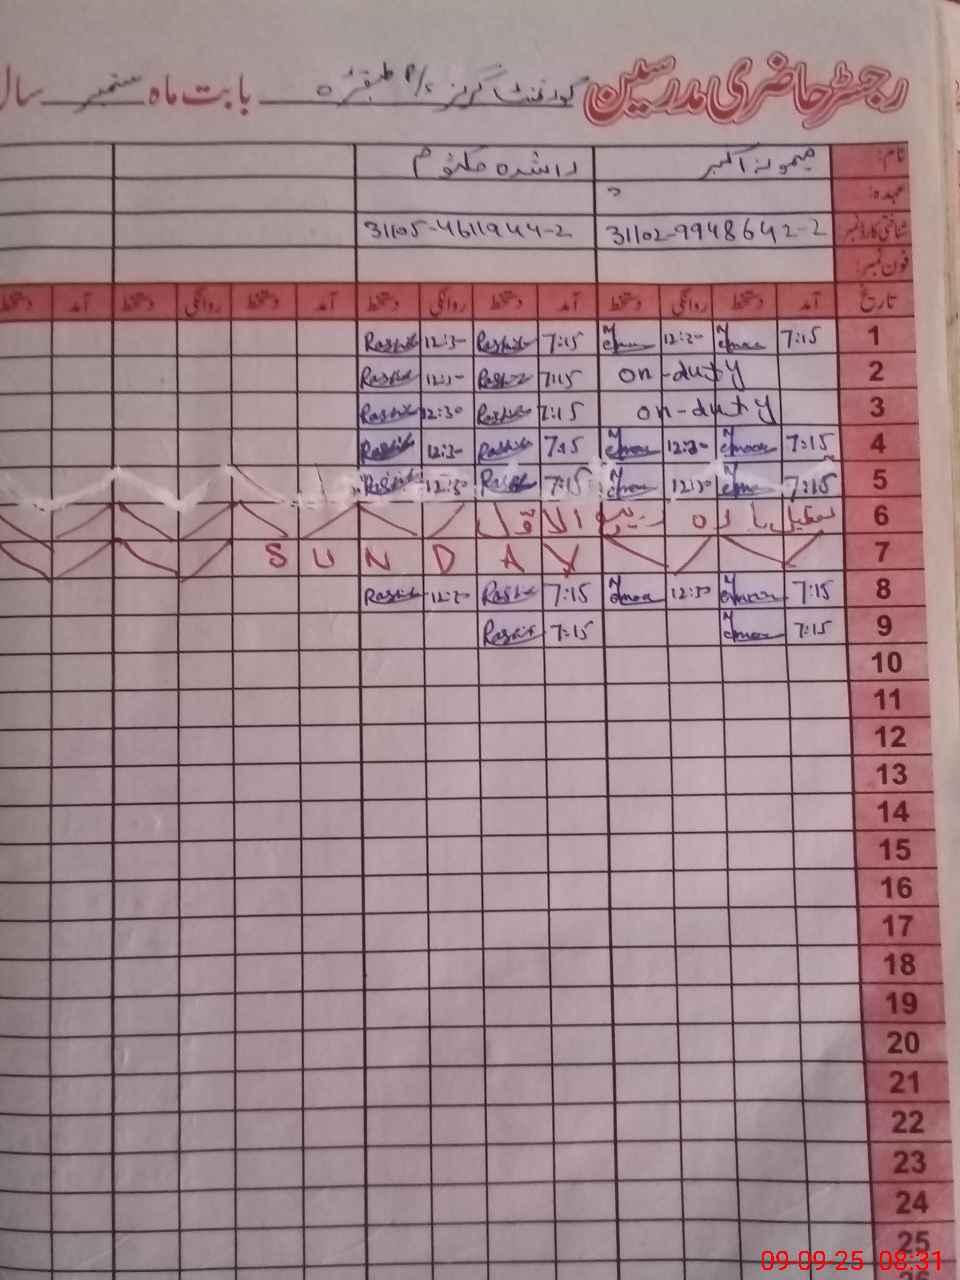 رجسٹر حاضری مدرسین گورنمنٹ گرلز P/S بابت ماہ ستمبر سال
نام: میمونہ اکبر راشدہ مکتوم
عہدہ:
شناختی کارڈ نمبر 31102-9948642-2 31105-4611944-2
فون نمبر:
تاریخ آمد دستخط روانگی دستخط آمد دستخط روانگی دستخط آمد دستخط روانگی دستخط آمد دستخط
1 7:15 12:30 7:15 Rashid 12:30 Rashid
2 on-duty 7:15 Rashid Rashid
3 on-duty 7:15 Rashid 12:30 Rashid
4 7:15 12:30 7:15 Rashid 12:30 Rashid
5 7:15 12:30 7:15 Rashid 12:30 Rashid
6 تعطیل بارہ ربیع الاول
7 SUNDAY
8 7:15 12:30 7:15 Rashid 12:30 Rashid
9 7:15 7:15 Rashid
10
11
12
13
14
15
16
17
18
19
20
21
22
23
24
25
09-09-25 08:31